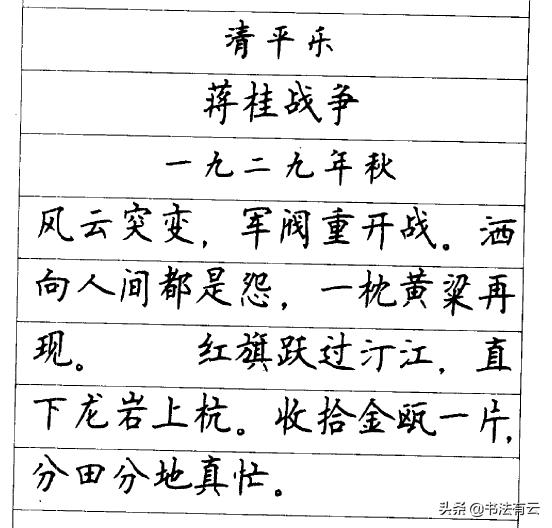 清平乐
蒋桂战争
一九二九年秋
风云突变，军阀重开战。洒
向人间都是怨，一枕黄粱再
现。 红旗跃过汀江，直
下龙岩上杭。收拾金瓯一片，
分田分地真忙。
头条@书法有云